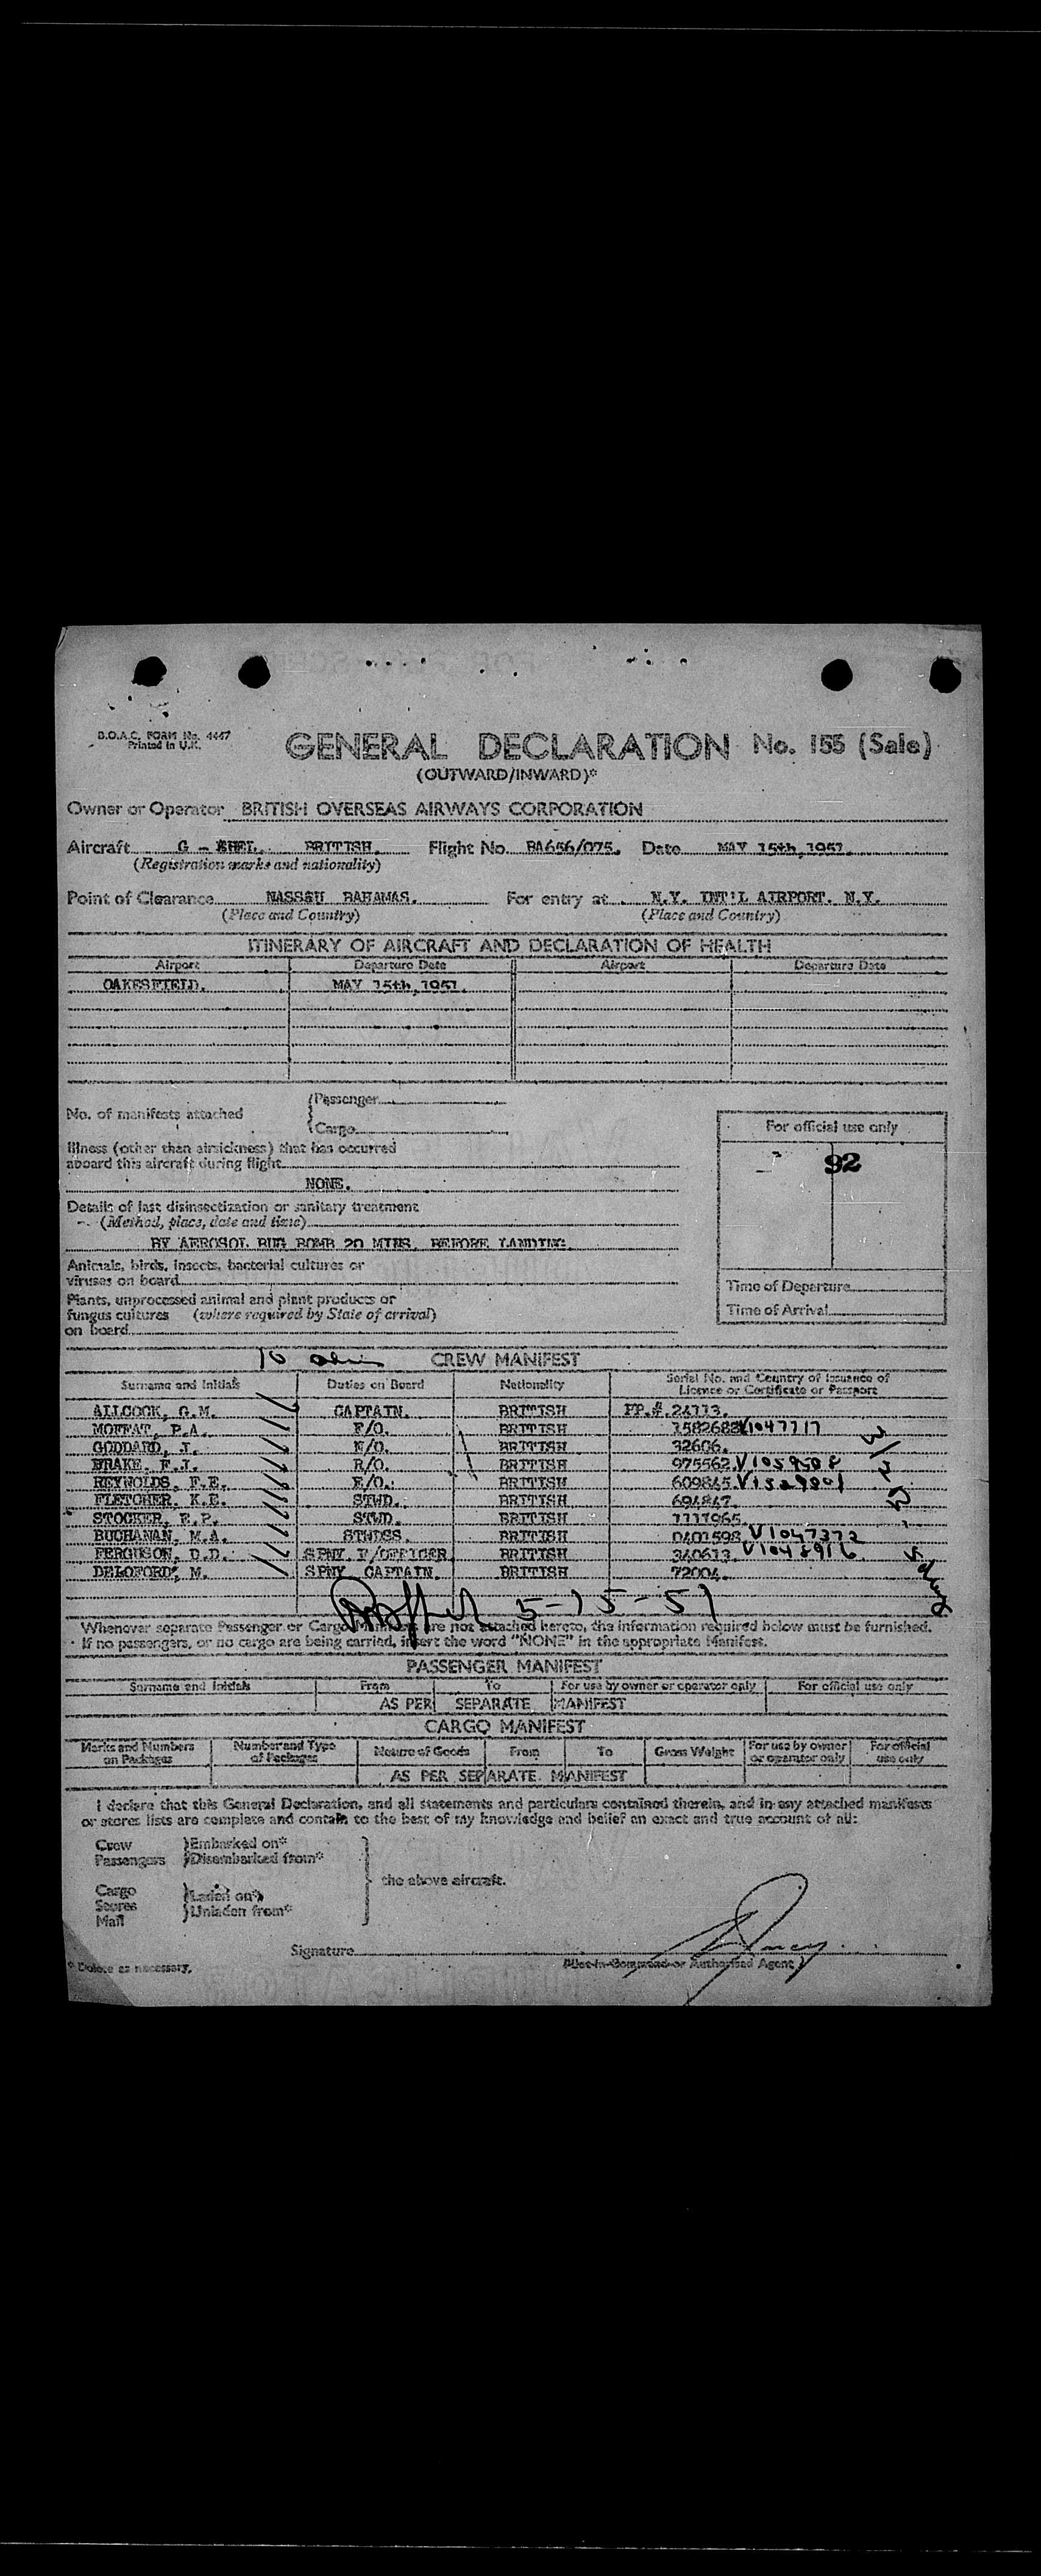 B.O.A.C. FORM No. 4447
Printed in U.K.
GENERAL DECLARATION No. 155 (Sale)
(OUTWARD/INWARD)*
Owner or Operator BRITISH OVERSEAS AIRWAYS CORPORATION
Aircraft G - BRITISH. Flight No. BA656/075. Date MAY 15th, 1951.
(Registration marks and nationality)
Point of Clearance NASSAU BAHAMAS. For entry at N.Y. INT'L AIRPORT. N.Y.
(Place and Country) (Place and Country)
ITINERARY OF AIRCRAFT AND DECLARATION OF HEALTH
Airport Departure Date Airport Departure Date
OAKESFIELD. MAY 15th, 1951.
No. of manifests attached
Passenger
Cargo
For official use only
92
Illness (other than airsickness) that has occurred
aboard this aircraft during flight
NONE.
Details of last disinsectization or sanitary treatment
(Method, place, date and time)
BY AEROSOL BUG BOMB 20 MINS. BEFORE LANDING.
Animals, birds, insects, bacterial cultures or
viruses on board
Time of Departure
Plants, unprocessed animal and plant products or
fungus cultures (where required by State of arrival)
on board
Time of Arrival
10 CREW MANIFEST
Surname and Initials Duties on Board Nationality Serial No. and Country of Issuance of
Licence or Certificate or Passport
ALLCOCK, G.M. CAPTAIN. BRITISH PP.#. 24113.
MOFFAT, P.A. F/O. BRITISH 1582688 V1047717
GODDARD, J. N/O. BRITISH 32606.
BRAKE, F.J. R/O. BRITISH 975562.
REYNOLDS, F.E. E/O. BRITISH 609845.
FLETCHER, K.E. STWD. BRITISH 694847.
STOCKER, E.P. STWD. BRITISH 1111965.
BUCHANAN, M.A. STWDSS. BRITISH 0401598 V1047372
FERGUSON, D.D. SPNY. F/OFFICER. BRITISH 340613. V1048916
DELOFORD, M. SPNY CAPTAIN. BRITISH 72004.
5-15-51
Whenever separate Passenger or Cargo Manifests are not attached hereto, the information required below must be furnished.
If no passengers, or no cargo are being carried, insert the word "NONE" in the appropriate Manifest.
PASSENGER MANIFEST
Surname and Initials From To For use by owner or operator only For official use only
AS PER SEPARATE MANIFEST
CARGO MANIFEST
Marks and Numbers on Packages Number and Type of Packages Nature of Goods From To Gross Weight For use by owner or operator only For official use only
AS PER SEPARATE MANIFEST
I declare that this General Declaration, and all statements and particulars contained therein, and in any attached manifests
or stores lists are complete and contain to the best of my knowledge and belief an exact and true account of all:
Crew Embarked on*
Passengers Disembarked from*
the above aircraft.
Cargo
Stores Laden on*
Mail Unladen from*
Signature
Pilot-in-Command or Authorised Agent
* Delete as necessary.